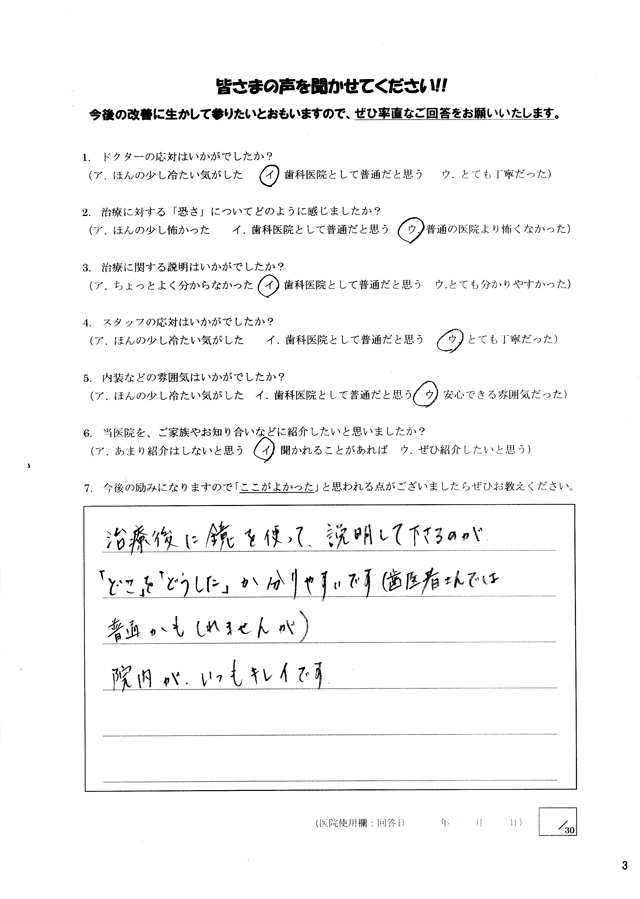 皆さまの声を聞かせてください!!
今後の改善に生かして参りたいとおもいますので、ぜひ率直なご回答をお願いいたします。
1. ドクターの応対はいかがでしたか？
（ア. ほんの少し冷たい気がした　イ. 歯科医院として普通だと思う　ウ. とても丁寧だった）
2. 治療に対する「恐さ」についてどのように感じましたか？
（ア. ほんの少し怖かった　イ. 歯科医院として普通だと思う　ウ. 普通の医院より怖くなかった）
3. 治療に関する説明はいかがでしたか？
（ア. ちょっとよく分からなかった　イ. 歯科医院として普通だと思う　ウ.とても分かりやすかった）
4. スタッフの応対はいかがでしたか？
（ア. ほんの少し冷たい気がした　イ. 歯科医院として普通だと思う　ウ. とても丁寧だった）
5. 内装などの雰囲気はいかがでしたか？
（ア. ほんの少し冷たい気がした　イ. 歯科医院として普通だと思う　ウ. 安心できる雰囲気だった）
6. 当医院を、ご家族やお知り合いなどに紹介したいと思いましたか？
（ア. あまり紹介はしないと思う　イ. 聞かれることがあれば　ウ. ぜひ紹介したいと思う）
7. 今後の励みになりますので「ここがよかった」と思われる点がございましたらぜひお教えください。
治療後に鏡を使って、説明して下さるのが
「どこ」を「どうした」か分りやすいです(歯医者さんでは
普通かもしれませんが)
院内が、いつもキレイです
（医院使用欄：回答日　年　月　日）
/30
3